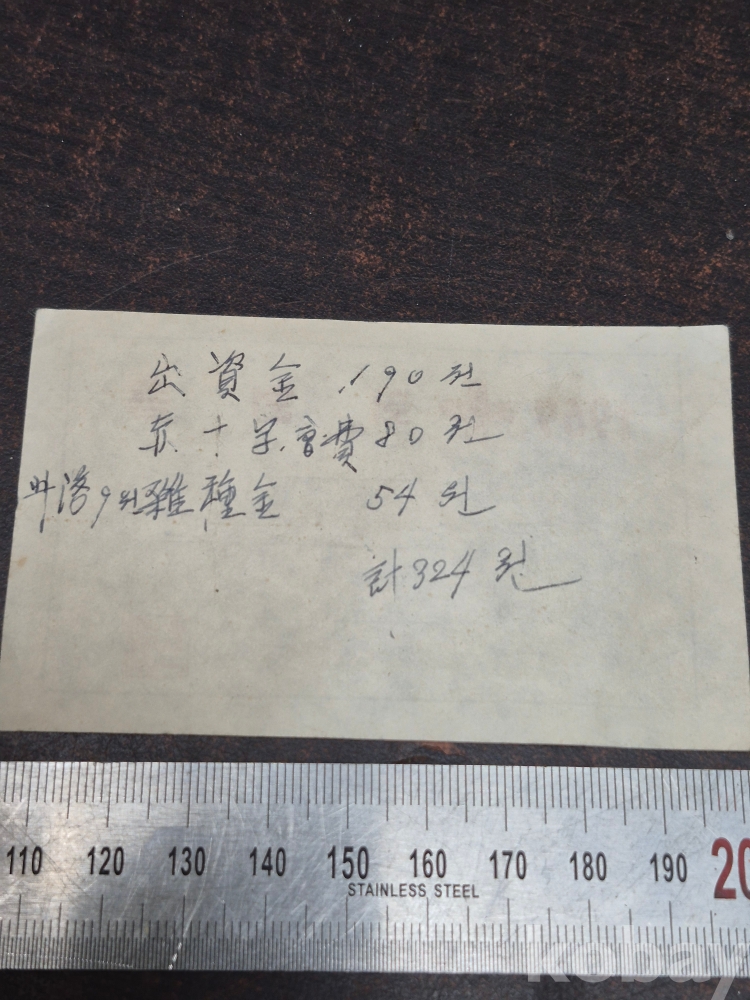 出資金 190원
赤十字會費 80원
部落9월雜種金 54원
計324원
110 120 130 140 150 160 170 180 190 20
STAINLESS STEEL
kobay